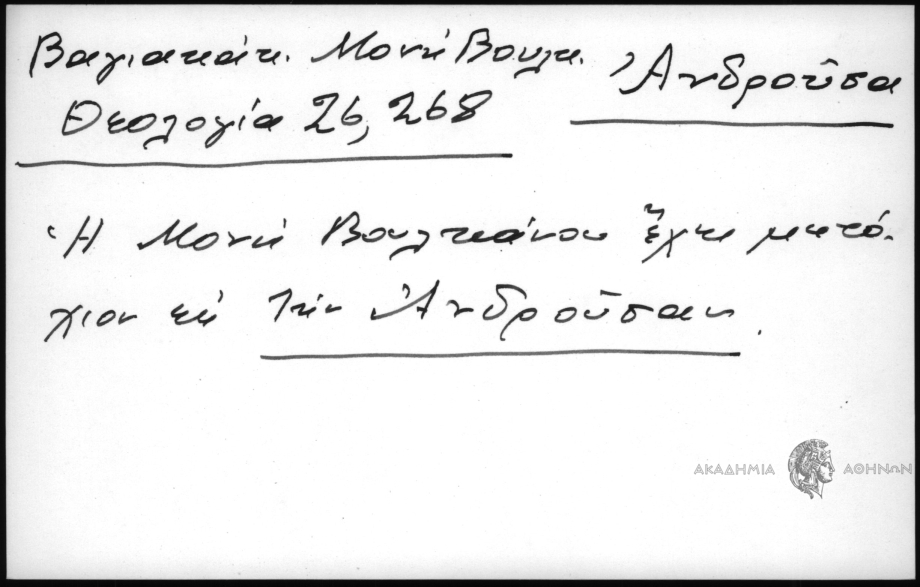 Βαγιακάκ. Μονή Βουλκ.
Θεολογία 26, 268
Ἀνδροῦσα
Ἡ Μονή Βουλκάνου ἔχει μετό-
χιον εἰς τήν Ἀνδροῦσαν.
ΑΚΑΔΗΜΙΑ ΑΘΗΝΩΝ